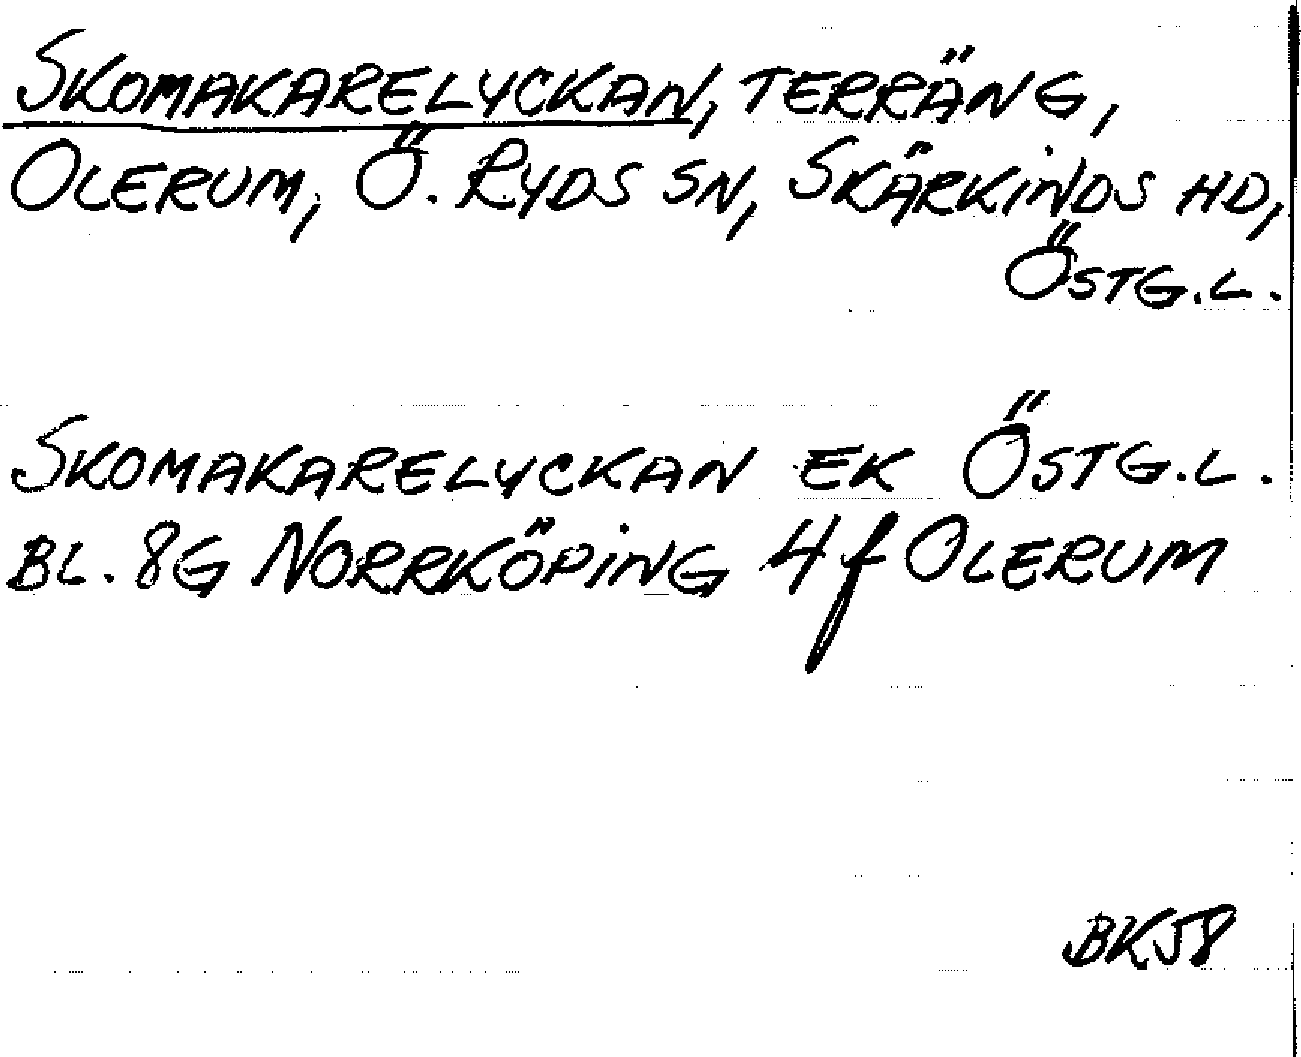 SKOMAKARELYCKAN, TERRÄNG,
OLERUM, Ö. RYDS SN, SKÄRKINDS HD,
ÖSTG.L.
SKOMAKARELYCKAN EK ÖSTG.L.
BL. 8G NORRKÖPING 4f OLERUM
BK58